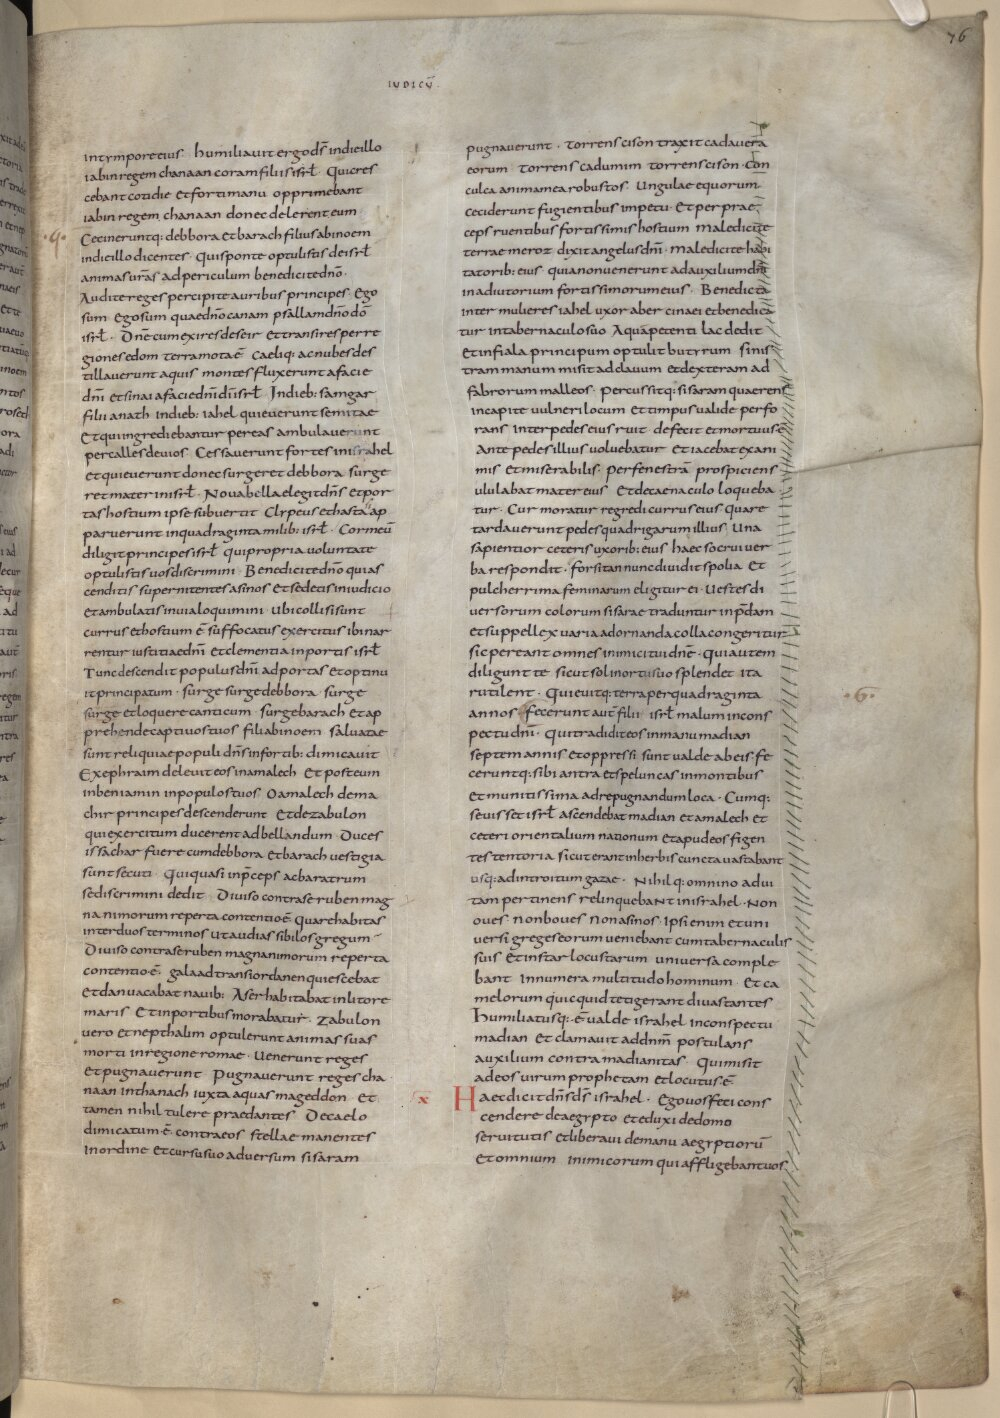 76
IUDICŪ
intympore eius humiliauit ergo ds̄ indie illo
iabin regem chanaan coram filiis isrł. Qui cres
cebant cotidie et forti manu opprimebant
iabin regem chanaan donec delerent eum
·5·
Cecineruntq: debbora et barach filius abinoem
indie illo dicentes. Qui sponte optulistis de isrł
animas ur̄as ad periculum benedicite dn̄o.
Audite reges percipite auribus principes. Ego
sum. Ego sum quae dn̄o canam psallam dn̄o dō
isrł. Dn̄e cum exires de seir et transires per re
giones edom terra mota ē. Caeliq: ac nubes des
tillauerunt aquis montes fluxerunt a facie
dn̄i et sinai a facie dn̄i dī isrł. Indieb: samgar
filii anath indieb: iahel quieuerunt semitae
Et qui ingrediebantur per eas ambulauerunt
per calles deuios. Cessauerunt fortes in israhel
et quieuerunt donec surgeret debbora surge
ret mater in isrł. Noua bella elegit dn̄s et por
tas hostium ipse subuertit. Clypeus et hasta ap
paruerunt in quadraginta milib: isrł. Cor meū
diligit principes isrł qui propria uoluntate
optulistis uos discrimini. Benedicite dn̄o qui as
cenditis super nitentes asinos et sedetis in iudicio
et ambulatis in uia loquimini. Ubi collisi sunt
currus et hostium ē suffocatus exercitus ibi nar
rentur iustitiae dn̄i et clementia in portis isrł
Tunc descendit populus dn̄i ad portas et optinu
it principatum. surge surge debbora surge
surge et loquere canticum. surge barach et ap
prehende captiuos tuos fili abinoem saluatae
sunt reliquiae populi dn̄s in fortib: dimicauit
Ex ephraim deleuit eos in amalech et post eum
in beniamin in populos tuos O amalech de ma
chir principes descenderunt et de zabulon
qui exercitum ducerent ad bellandum. Duces
issachar fuere cum debbora et barach uestigia
sunt secuti. Qui quasi in p̄ceps ac baratrum
se discrimini dedit. Diuiso contra se ruben mag
nanimorum reperta contentio ē. Quare habitas
inter duos terminos ut audias sibilos gregum
Diuiso contra se ruben magnanimorum reperta
contentio ē. galaad trans iordanen quiescebat
et dan uacabat nauib: Aser habitabat in litore
maris et in portibus morabatur. Zabulon
uero et nepthalim optulerunt animas suas
morti in regione romae. Uenerunt reges
et pugnauerunt Pugnauerunt reges cha
naan in thanach iuxta aquas mageddon et
tamen nihil tulere praedantes De caelo
dimicatum ē contra eos stellae manentes
in ordine et cursu suo aduersum sisaram
pugnauerunt. torrens cison traxit cadauera
eorum torrens cadumim torrens cison. Con
culca anima mea robustos. Ungulae equorum
ceciderunt fugientibus impetu et per prae
ceps ruentibus fortissimis hostium Maledicite
terrae meroz dixit angelus dn̄i. Maledicite habi
tatorib: eius quia non uenerunt ad auxilium dn̄i
in adiutorium fortissimorum eius. Benedicta
inter mulieres iahel uxor aber cinaei et benedica
tur in tabernaculo suo Aquā petenti lac dedit
et in fiala principum optulit butyrum sinis
tram manum misit ad clauum et dexteram ad
fabrorum malleos. Percussitq: sisaram quaerens
in capite uulneri locum et timpus ualide perfo
rans inter pedes eius ruit defecit et mortuus ē
Ante pedes illius uoluebatur et iacebat exani
mis et miserabilis. per fenestrā prospiciens
ululabat mater eius et de caenaculo loqueba
tur. Cur moratur regredi currus eius quare
tardauerunt pedes quadrigarum illius Una
sapientior ceteris uxorib: eius haec socrui uer
ba respondit. forsitan nunc diuidit spolia et
pulcherrima feminarum eligitur ei. Uestes di
uersorum colorum sisarae traduntur in p̄dam
et suppellex uaria ad ornanda colla congeritur
sic pereant omnes inimici tui dn̄e. Qui autem
diligunt te sicut sol in ortu suo splendet ita
rutilent. Quieuitq: terra per quadraginta
·6·
annos fecerunt aut̄ filii isrł malum in cons
pectu dn̄i. Qui tradidit eos in manu madian
septem annis et oppressi sunt ualde ab eis. fe
ceruntq: sibi antra et speluncas in montibus
et munitissima ad repugnandum loca. Cumq:
seuisset isrł ascendebat madian et amalech et
ceteri orientalium nationum et apud eos figen
tes tentoria sicut erant in herbis cuncta uastabant
usq: ad introitum gazae. Nihilq: omnino ad ui
tam pertinens relinquebant in israhel. Non
oues non boues non asinos. Ipsi enim et uni
uersi greges eorum ueniebant cum tabernaculis
suis et instar locustarum uniuersa comple
bant innumera multitudo hominum. Et ca
melorum quicquid tetigerant diuastantes
Humiliatusq: ē ualde israhel in conspectu
madian et clamauit ad dn̄m postulans
auxilium contra madianitas Qui misit
ad eos uirum prophetam et locutus ē
x
Haec dicit dn̄s ds̄ israhel. Ego uos feci cons
cendere de aegypto et eduxi de domo
seruitutis et liberaui de manu aegyptiorū
et omnium inimicorum qui affligebant uos